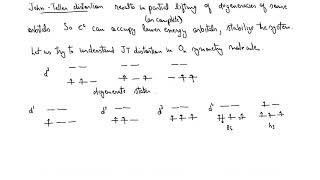 Jahn-Teller distortion results in partial lifting of degeneracies of some
(or complete)
orbitals. So e⁻s can occupy lower energy orbitals, stabilize the system.
Let us try to understand JT distortion in Oh symmetry molecule.
d²
degenerate states.
d¹ d³ d⁴
ls hs